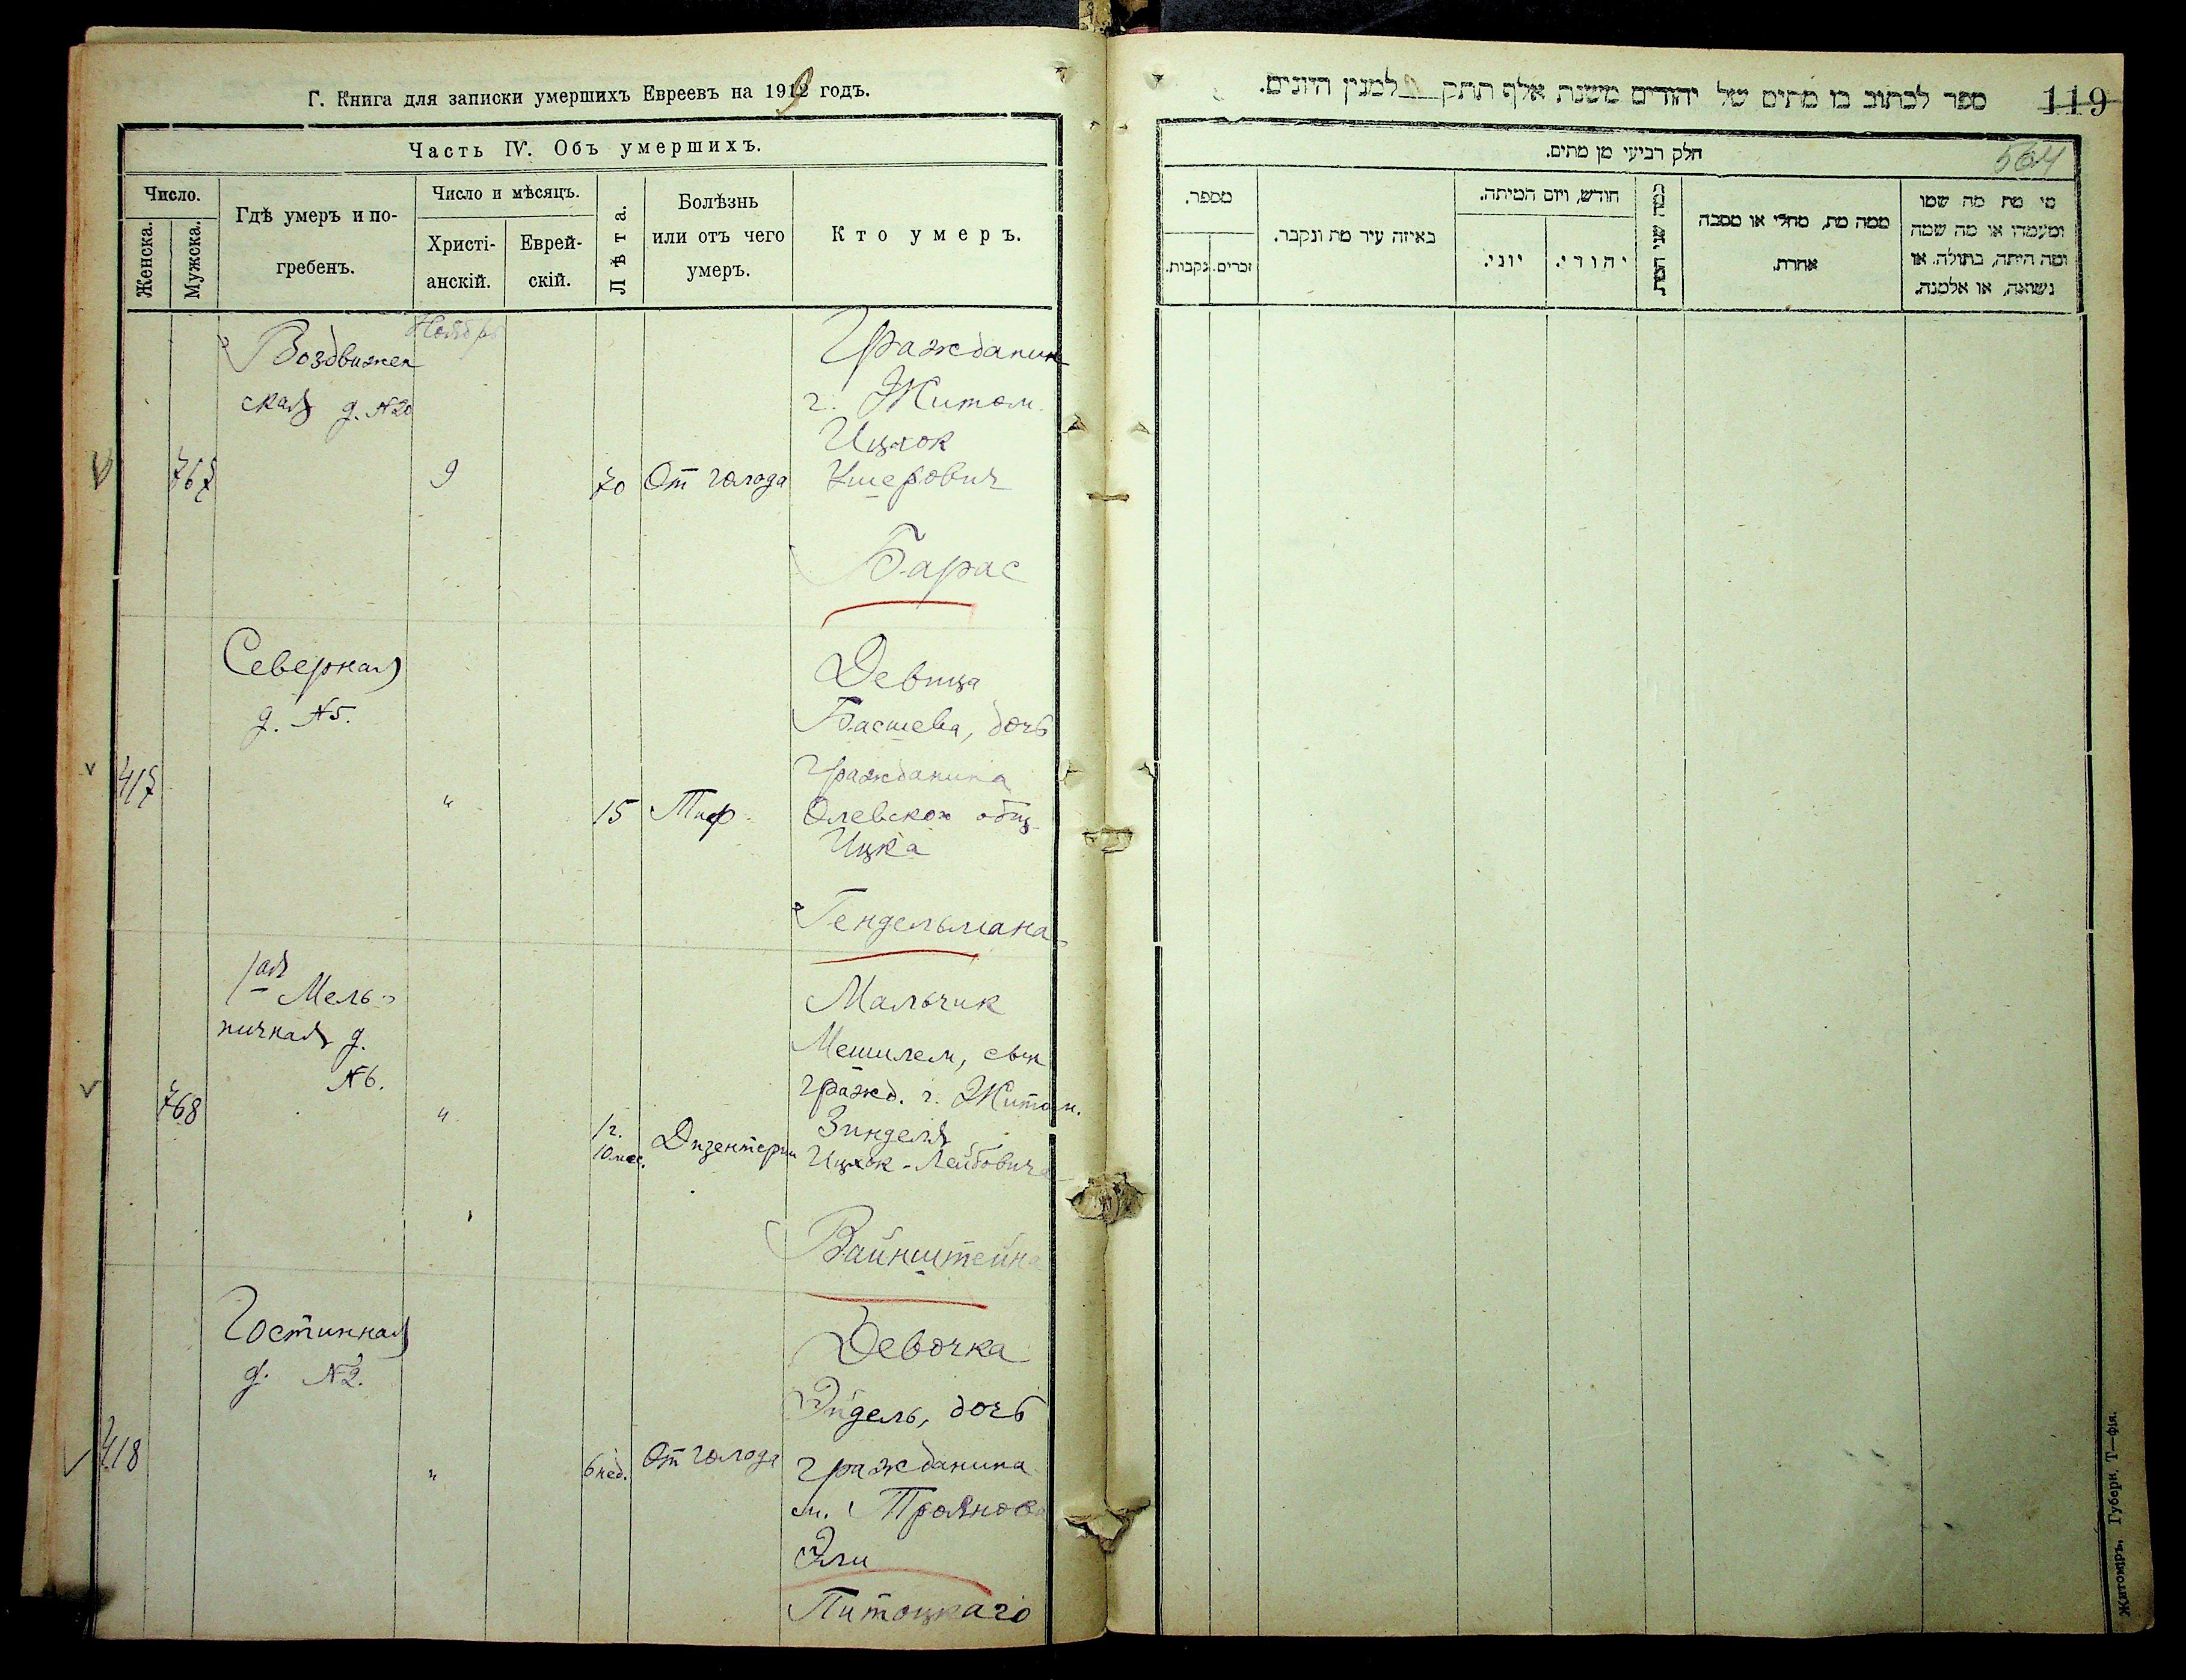 Г. Книга для записки умершихъ Евреевъ на 1919 годъ.
Часть IV. Объ умершихъ.
Число.
Женска.
Мужска.
Гдѣ умеръ и по-
гребенъ.
Число и мѣсяцъ.
Христі-
анскій.
Еврей-
скій.
Лѣта.
Болѣзнь
или отъ чего
умеръ.
Кто умеръ.
Ноябрь
Воздвижен
ская д. №20
767
9
70
От голода
Гражданин
г. Житом.
Ицхок
Ушерович
Барас
Северная
д. №5.
417
"
15
Тиф.
Девица
Басшева, дочь
гражданина
Олевской общ.
Ицка
Гендельмана
1ая Мель-
ничная д.
№6.
768
"
1г.
10 мес.
Дизентерии
Мальчик
Мешилем, сын
гражд. г. Житом.
Зинделя
Ицхок-Лейбовича
Вайнштейна
Гостинная
д. №2.
418
"
6 нед.
От голода
Девочка
Эйдель, дочь
гражданина
м. Троянова
Эли
Питоцкаго
ספר לכתוב בו מתים של יהודים משנת אלף תתק למנין היונים.
119
564
חלק רביעי מן מתים.
מספר.
נקבות.
זכרים.
באיזה עיר מת ונקבר.
חודש, ויום המיתה.
יוני.
יהודי.
כמה שני המת
ממה מת, מחלי או מסבה
אחרת.
מי מת מה שמו
ומעמדו או מה שמה
ומה היתה, בתולה, או
נשואה, או אלמנה.
Житоміръ, Губерн. Т—фія.